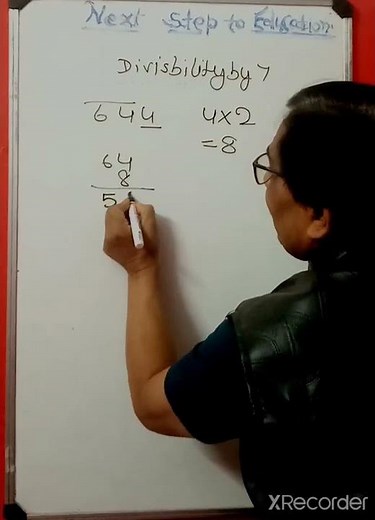 Next Step to Education
Divisbility by 7
644
4x2
=8
64
8
5
XRecorder